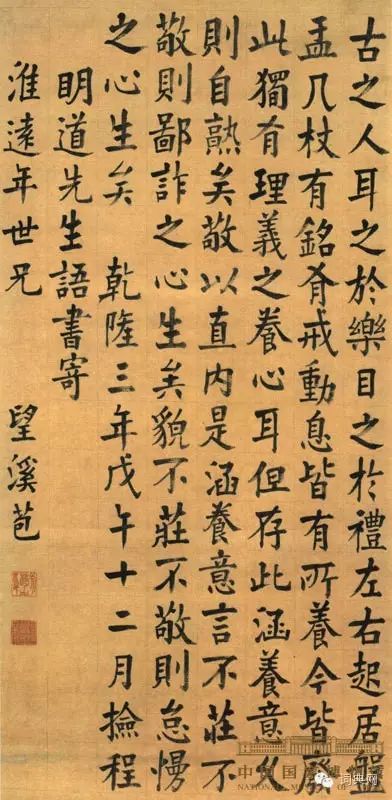 古之人耳之於樂目之於禮左右起居盤
盂几杖有銘有戒動息皆有所養今皆廢
此獨有理義之養心耳但存此涵養意久
則自熟矣敬以直内是涵養意言不莊不
敬則鄙詐之心生矣貌不莊不敬則怠慢
之心生矣 乾隆三年戊午十二月撿程
明道先生語書寄
淮遠年世兄 望溪苞
中国国家博物館
NATIONAL MUSEUM
词典网